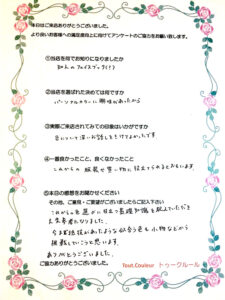 本日はご来店ありがとうございました。
より良いお客様への満足度向上に向けてアンケートのご協力をお願い致します。
①当店を何でお知りになりましたか
知人のフェイスブック
②当店を選ばれた決めては何ですか
パーソナルカラーに興味があったから
③実際ご来店されてみての印象はいかがですか
色について深いお話しをきけてよかったです
④一番良かったこと、良くなかったこと
これからの服装や買い物に役立てられるとおもいます
⑤本日の感想をお聞かせください
その他、ご意見・ご要望がございましたらご記入下さい
これからの色選びに役立つ基礎知識を教えていただき
大変良かったです。
今まで似合う色も小物などから
挑戦していこうと思います。
ありがとうございました。
ご協力ありがとうございました。
Tout.Couleur トゥークルール